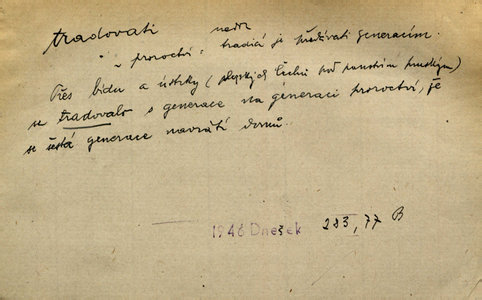 tradovati nedk
" proroctví = tradicí je předávati generacím.
Přes bídu a útisky (slezských Čechů pod panstvím pruským)
se tradovalo s generace na generaci proroctví, že
se šestá generace navrátí domů.
1946 Dnešek 283, 77 B